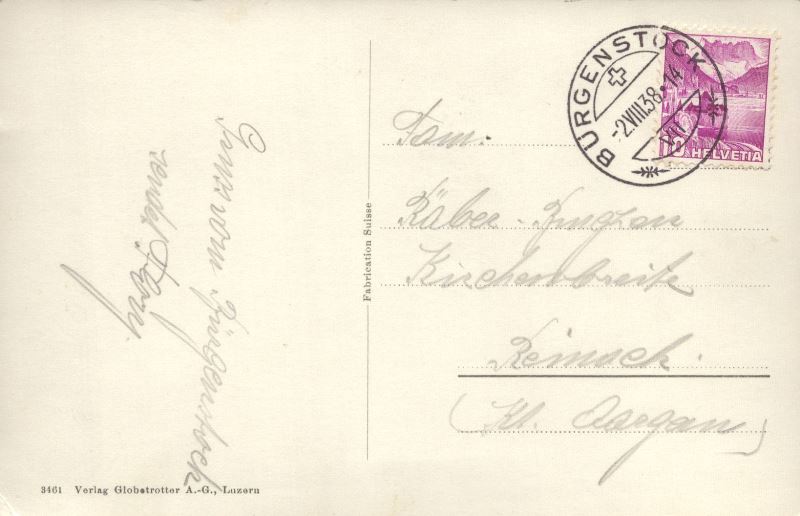 BÜRGENSTOCK
-2.VIII.38.-14
VII
10 HELVETIA
Fam.
Räber-
Kirchenbreite
Reinach.
(Kt. Aargau)
Gruss vom Bürgenstock
sendet
Fabrication Suisse
3461 Verlag Globetrotter A.-G., Luzern